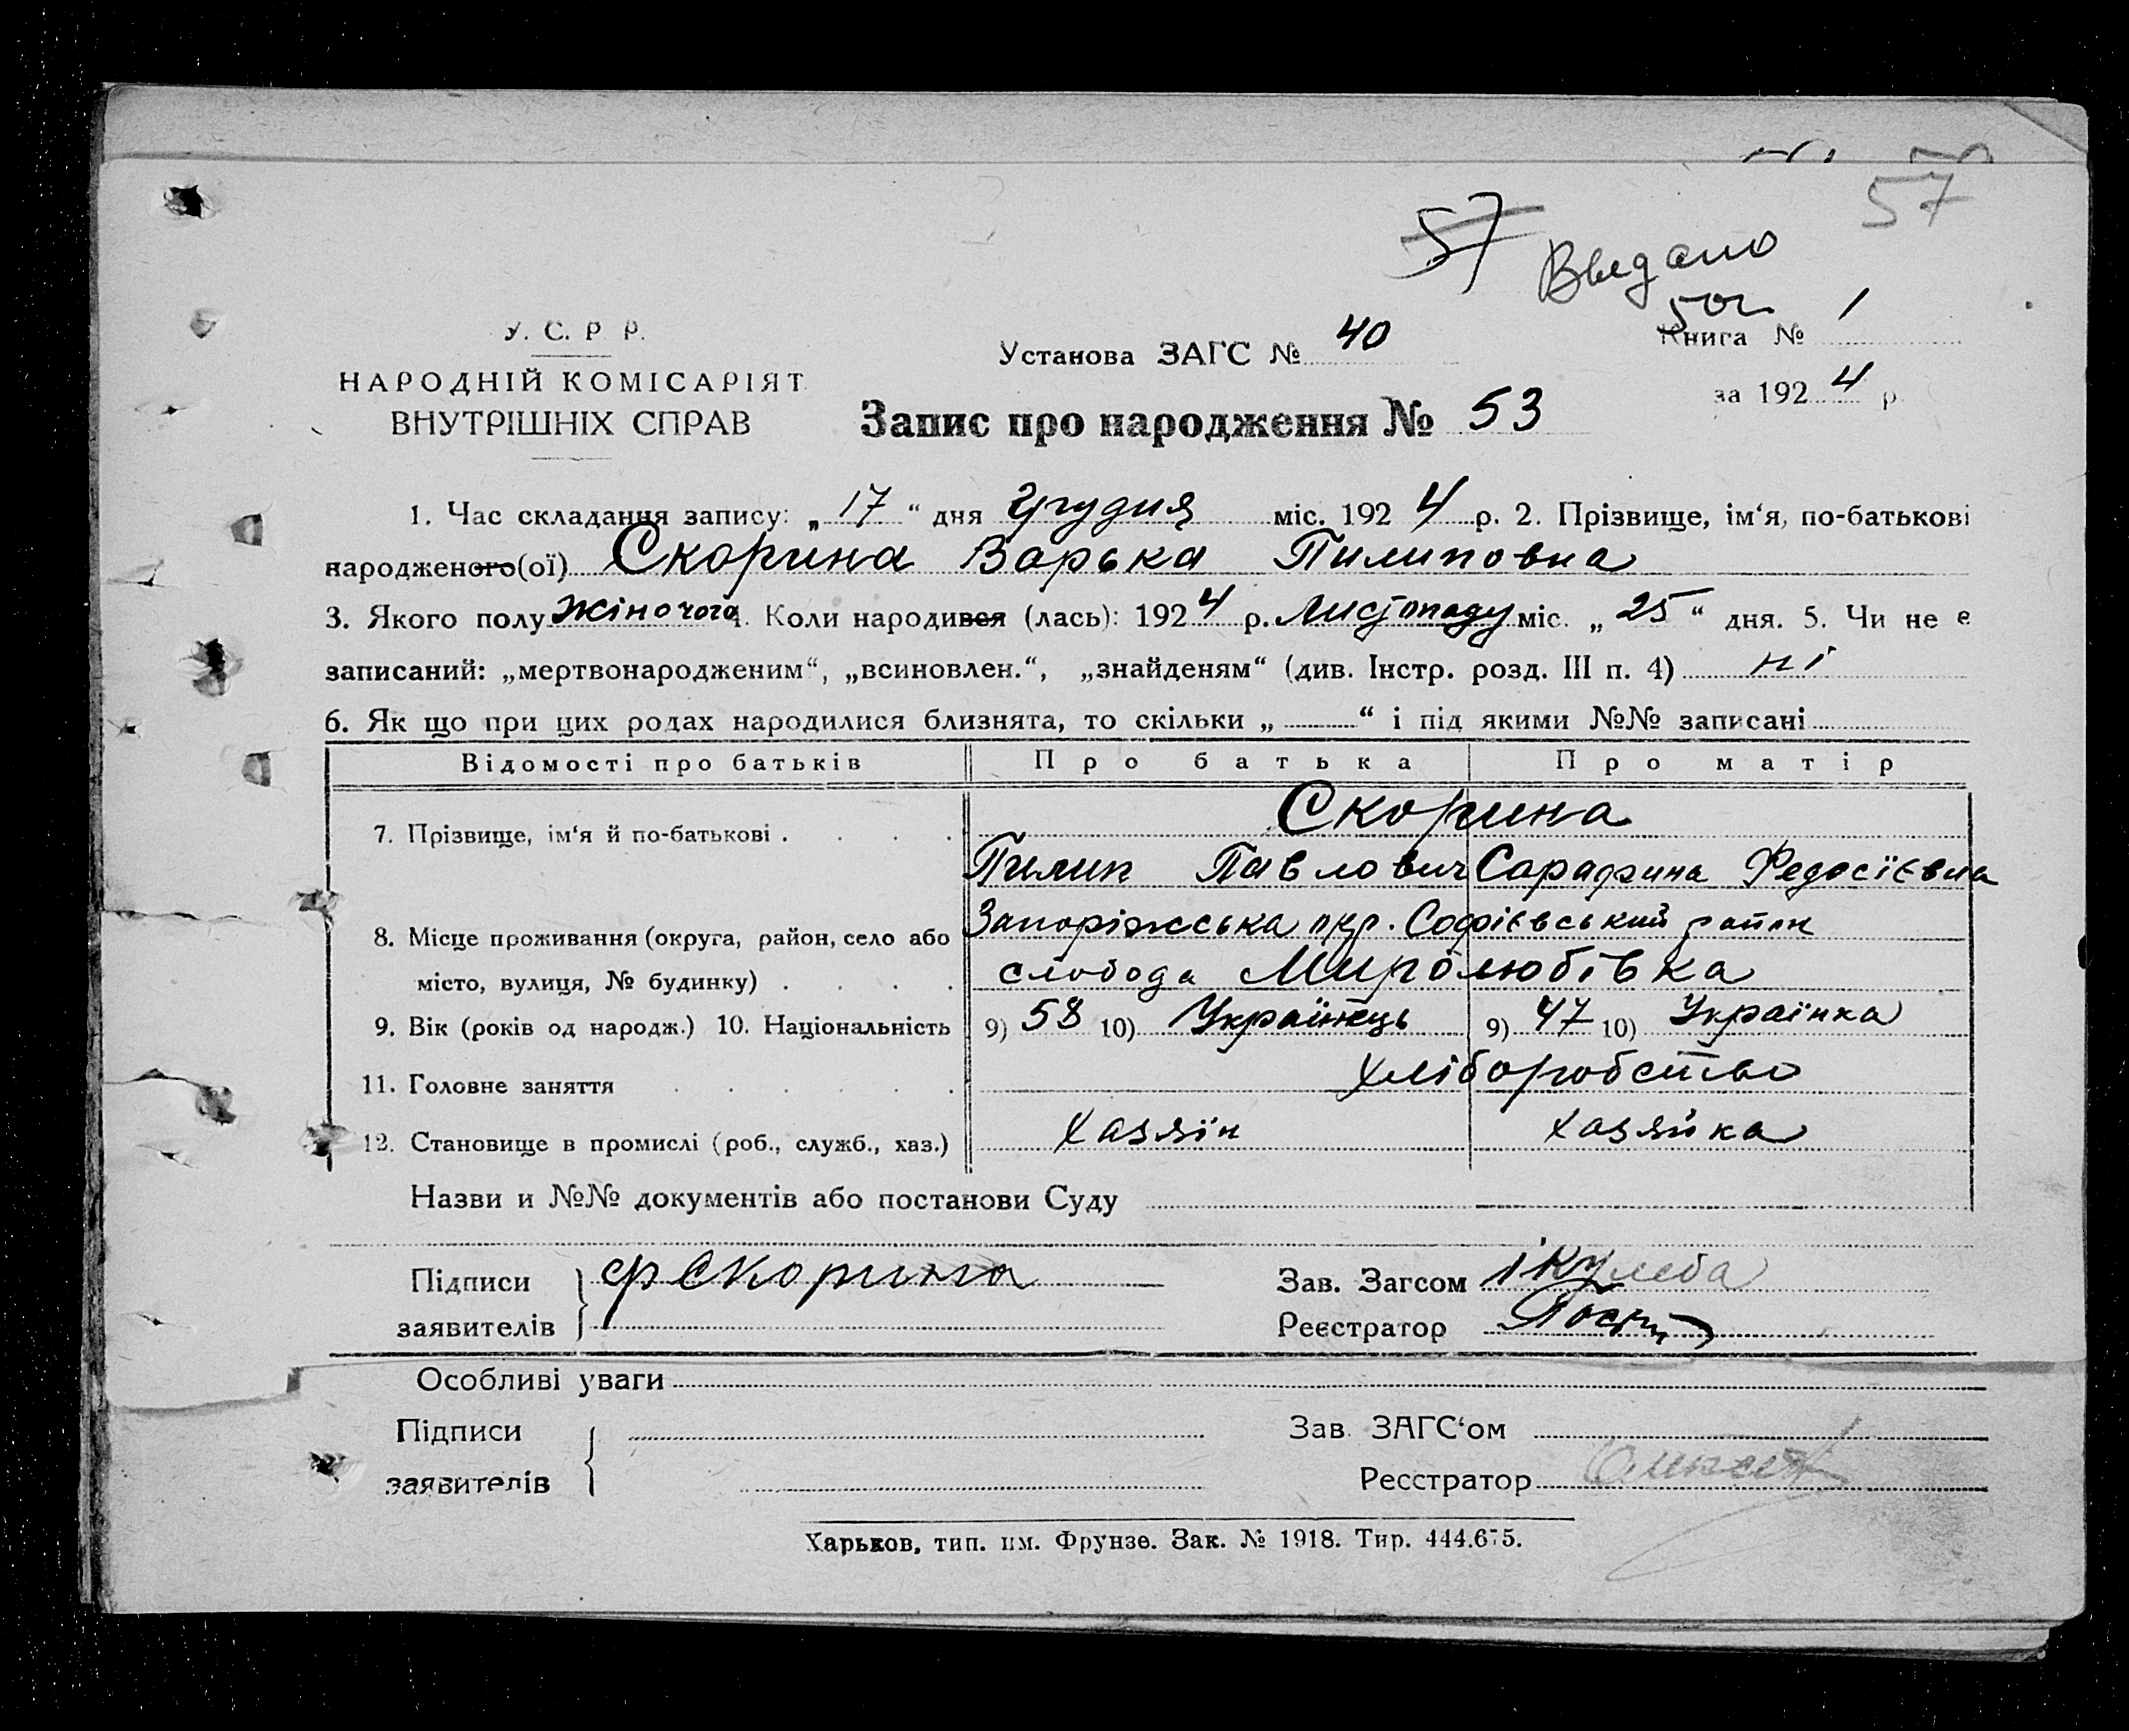 57
57 Выдано
50г.
У. С. Р Р.
НАРОДНІЙ КОМІСАРІЯТ
ВНУТРІШНІХ СПРАВ
Установа ЗАГС № 40
Книга № 1
за 192 4 р
Запис про народження № 53
1. Час складання запису: „ 17 “ дня грудня міс. 192 4 р. 2. Прізвище, ім‘я, по-батькові
народженого(ої) Скорина Варька Пилиповна
3. Якого полу жіночого 4. Коли народився (лась): 192 4 р. Листопаду міс. „ 25 “ дня. 5. Чи не е
записаний: „мертвонародженим“, „всиновлен.“, „знайденям“ (див. Інстр. розд. III п. 4) ні
6. Як що при цих родах народилися близнята, то скільки „ “ і під якими №№ записані
Відомості про батьків Про батька Про матір
7. Прізвище, ім‘я й по-батькові . . . . Скорина
Пилип Павлович Сарафина Федосієвна
8. Місце проживання (округа, район, село або Запоріжська окр. Софієвський район
місто, вулиця, № будинку) . . . . слобода Миролюбівка
9. Вік (років од народж.) 10. Національність 9) 58 10) Українець 9) 47 10) Українка
11. Головне заняття . . . . . хліборобство
12. Становище в промислі (роб., служб., хаз.) Хазяїн хазяйка
Назви и №№ документів або постанови Суду
Підписи ФСкорина Зав. Загсом і Кулеба
заявителів Реєстратор
Особливі уваги
Підписи Зав. ЗАГС‘ом
заявителів Реєстратор
Харьков, тип. им. Фрунзе. Зак. № 1918. Тир. 444.675.